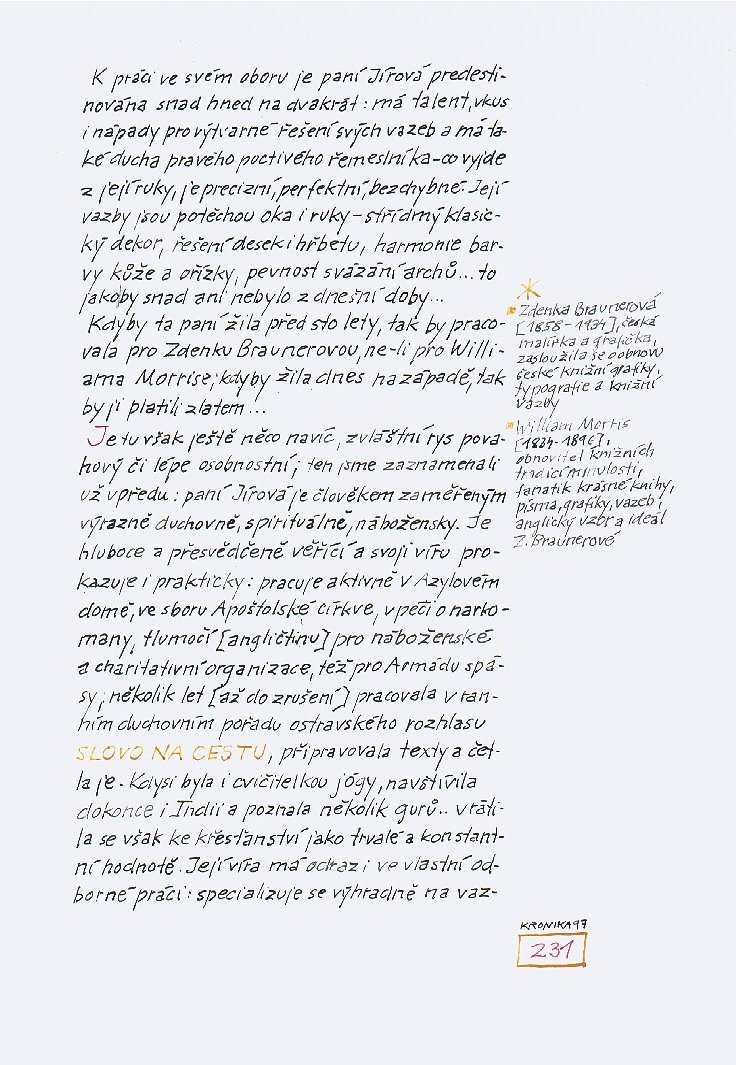 K práci ve svém oboru je paní Jírová predesti-
nována snad hned na dvakrát: má talent, vkus
i nápady pro výtvarné řešení svých vazeb a má ta-
ké ducha pravého poctivého řemeslníka – co vyjde
z její ruky, je precizní, perfektní, bezchybné. Její
vazby jsou potěchou oka i ruky – střídmý klasic-
ký dekor, řešení desek i hřbetu, harmonie bar-
vy kůže a ořízky, pevnost svázání archů... to
jakoby snad ani nebylo z dnešní doby...
Kdyby ta paní žila před sto lety, tak by praco-
vala pro Zdenku Braunerovou, ne-li pro Willi-
ama Morrise; kdyby žila dnes na západě, tak
by ji platili zlatem...
Je tu však ještě něco navíc, zvláštní rys pova-
hový či lépe osobnostní; ten jsme zaznamenali
už vpředu: paní Jírová je člověkem zaměřeným
výrazně duchovně, spirituálně, nábožensky. Je
hluboce a přesvědčeně věřící a svoji víru pro-
kazuje i prakticky: pracuje aktivně v Azylovém
domě, ve sboru Apoštolské církve, v péči o narko-
many, tlumočí [angličtinu] pro náboženské
a charitativní organizace, též pro Armádu spá-
sy; několik let [až do zrušení] pracovala v ran-
ním duchovním pořadu ostravského rozhlasu
SLOVO NA CESTU, připravovala texty a čet-
la je. Kdysi byla i cvičitelkou jógy, navštívila
dokonce i Indii a poznala několik gurů.. vráti-
la se však ke křesťanství jako trvalé a konstant-
ní hodnotě. Její víra má odraz i ve vlastní od-
borné práci: specializuje se výhradně na vaz-
Zdenka Braunerová
[1858–1934], česká
malířka a grafička,
zasloužila se o obnovu
české knižní grafiky,
typografie a knižní
vazby
William Morris
[1834–1896],
obnovitel knižních
tradic minulosti,
fanatik krásné knihy,
písma, grafiky, vazeb;
anglický vzor a ideál
Z. Braunerové
KRONIKA 97
231